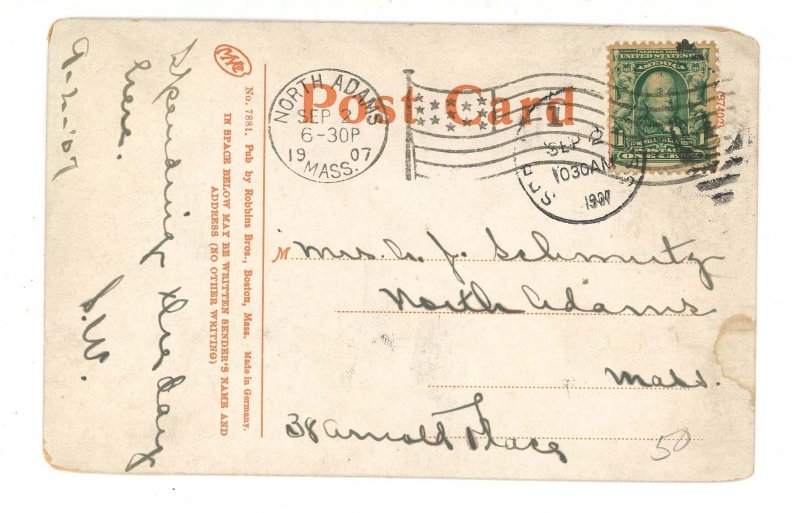 9-2-'07
Spending the day
here.
S.W.
No. 7881. Pub by Robbins Bros., Boston, Mass. Made in Germany.
IN SPACE BELOW MAY BE WRITTEN SENDER'S NAME AND
ADDRESS (NO OTHER WRITING)
Post Card
NORTH ADAMS
SEP 2
6-30P
1907
MASS.
SEP 2
1030AM
1907
SERIES 1902
UNITED STATES OF
AMERICA
Mrs. A. J. Schmutz
North Adams
Mass.
38 Arnold Place
50